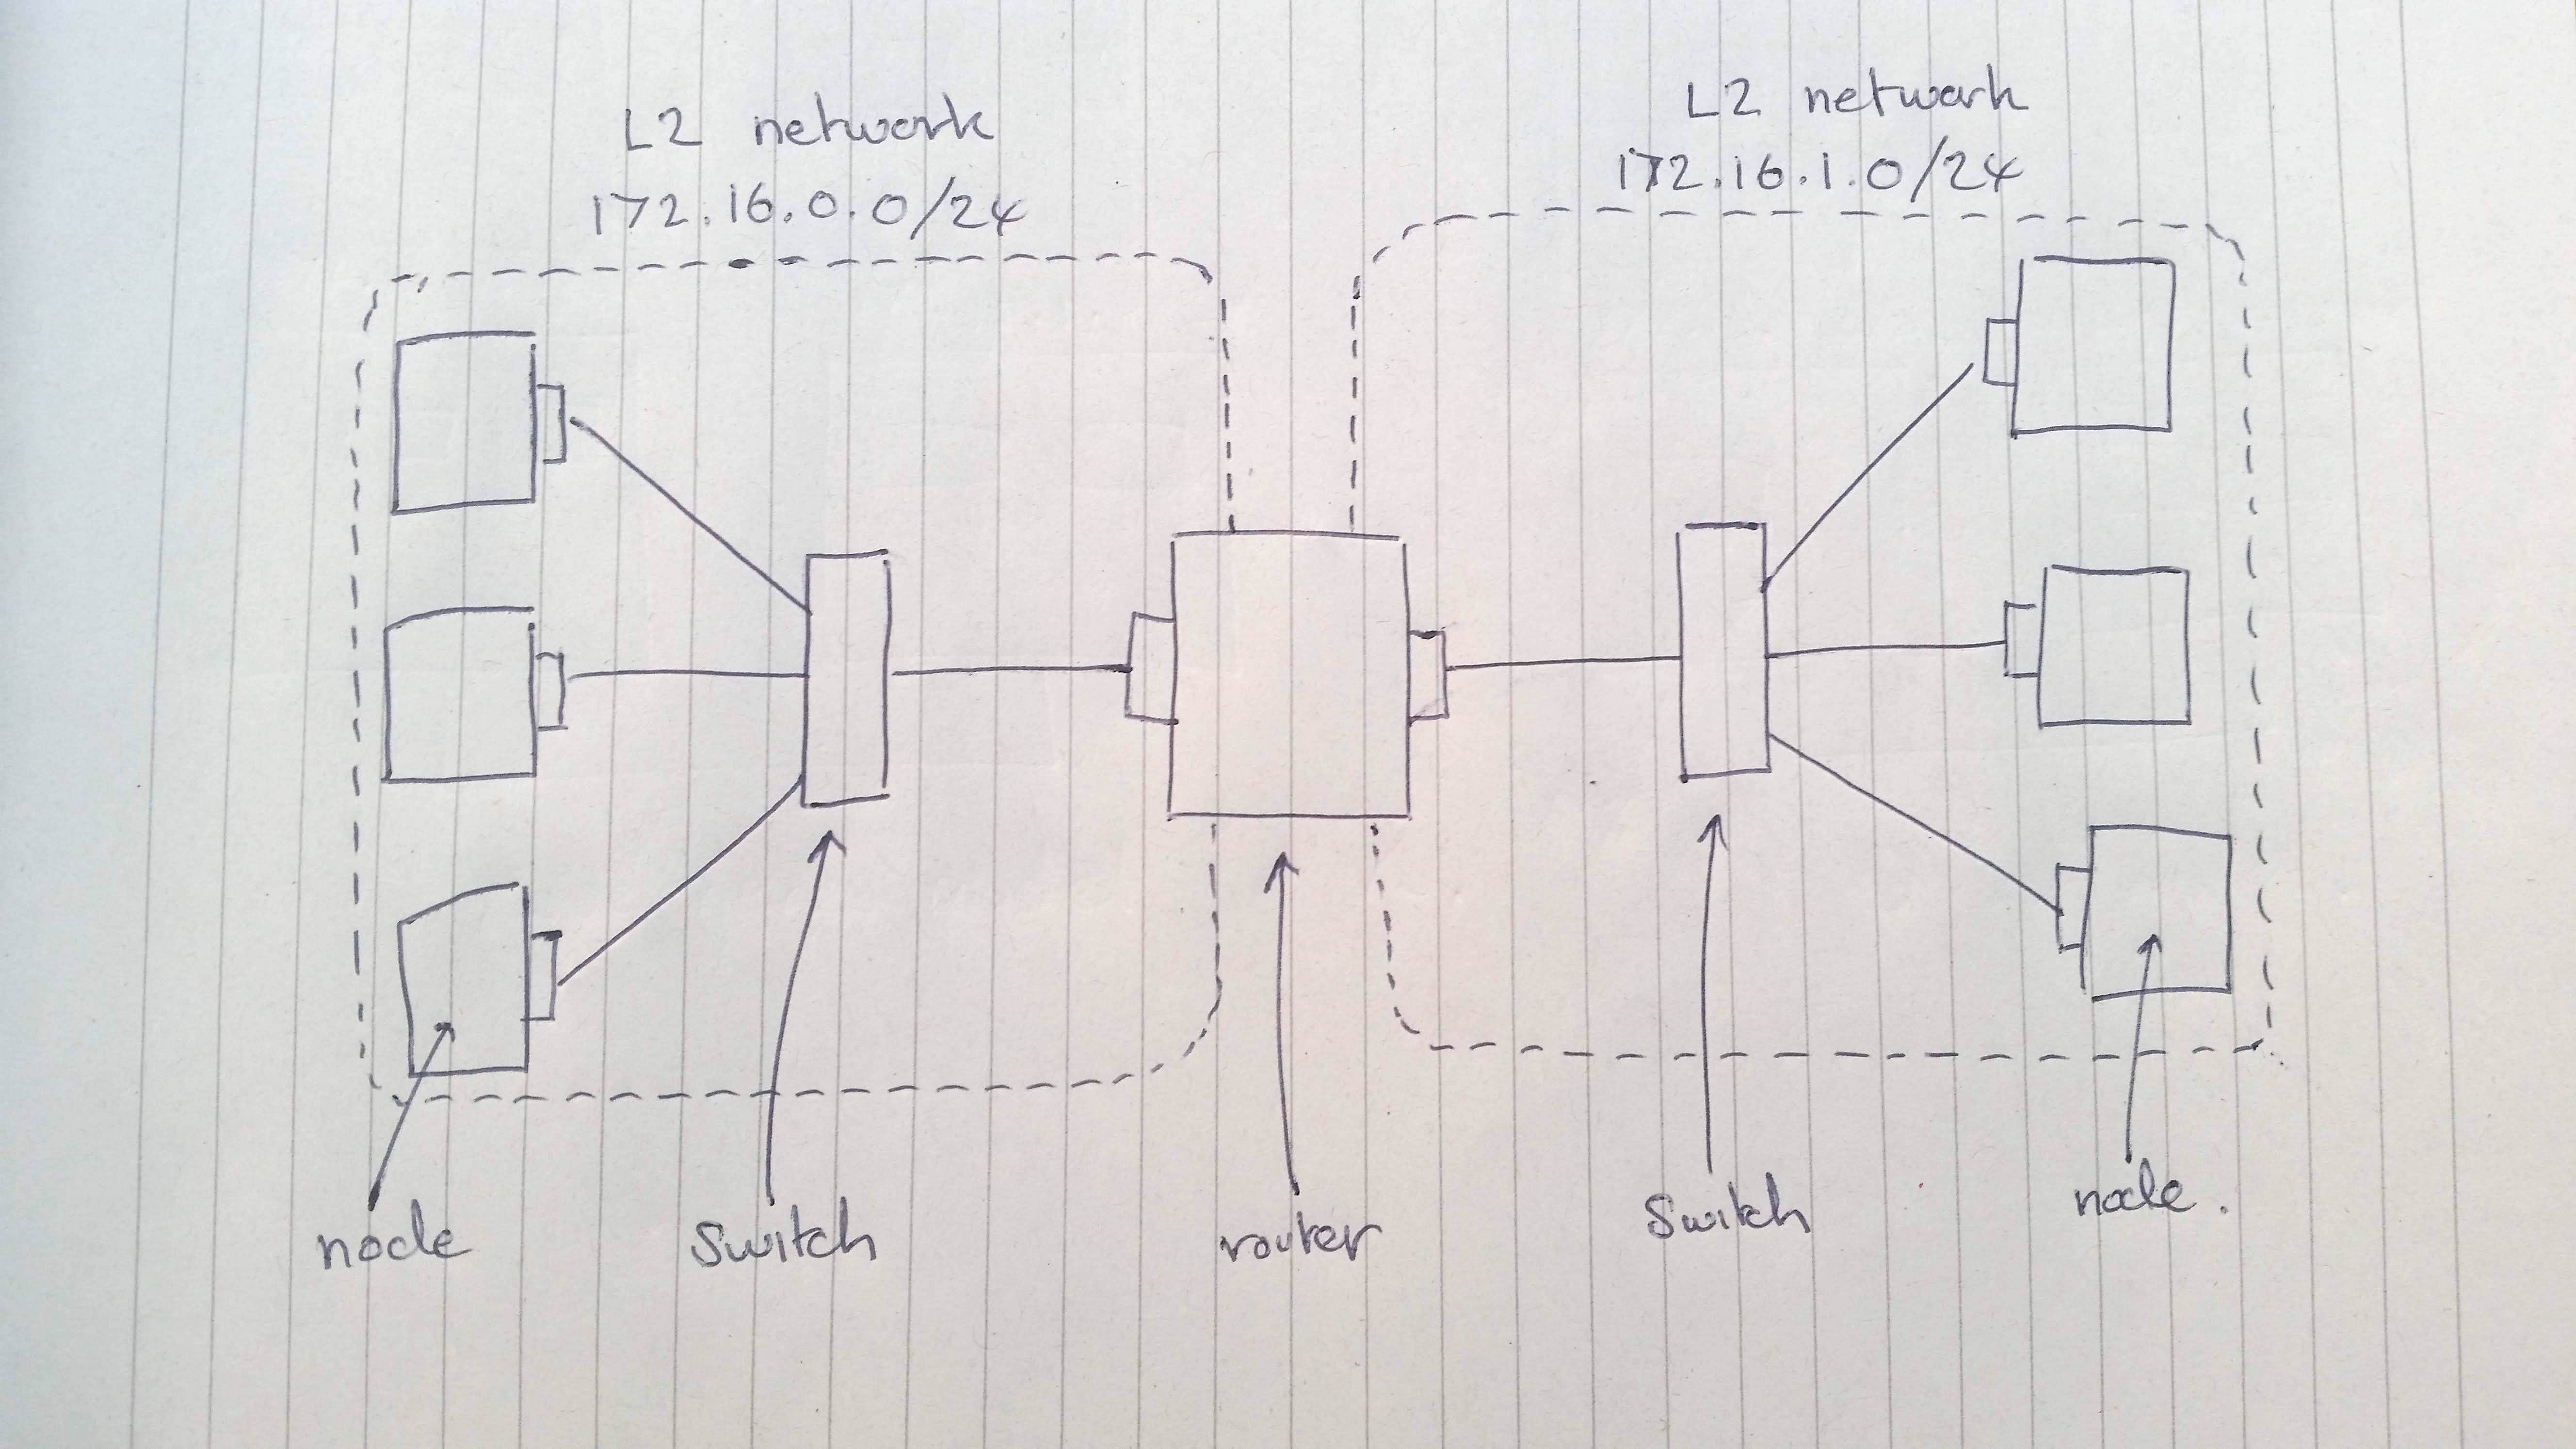 L2 network
172.16.0.0/24
L2 network
172.16.1.0/24
node
Switch
router
Switch
node.